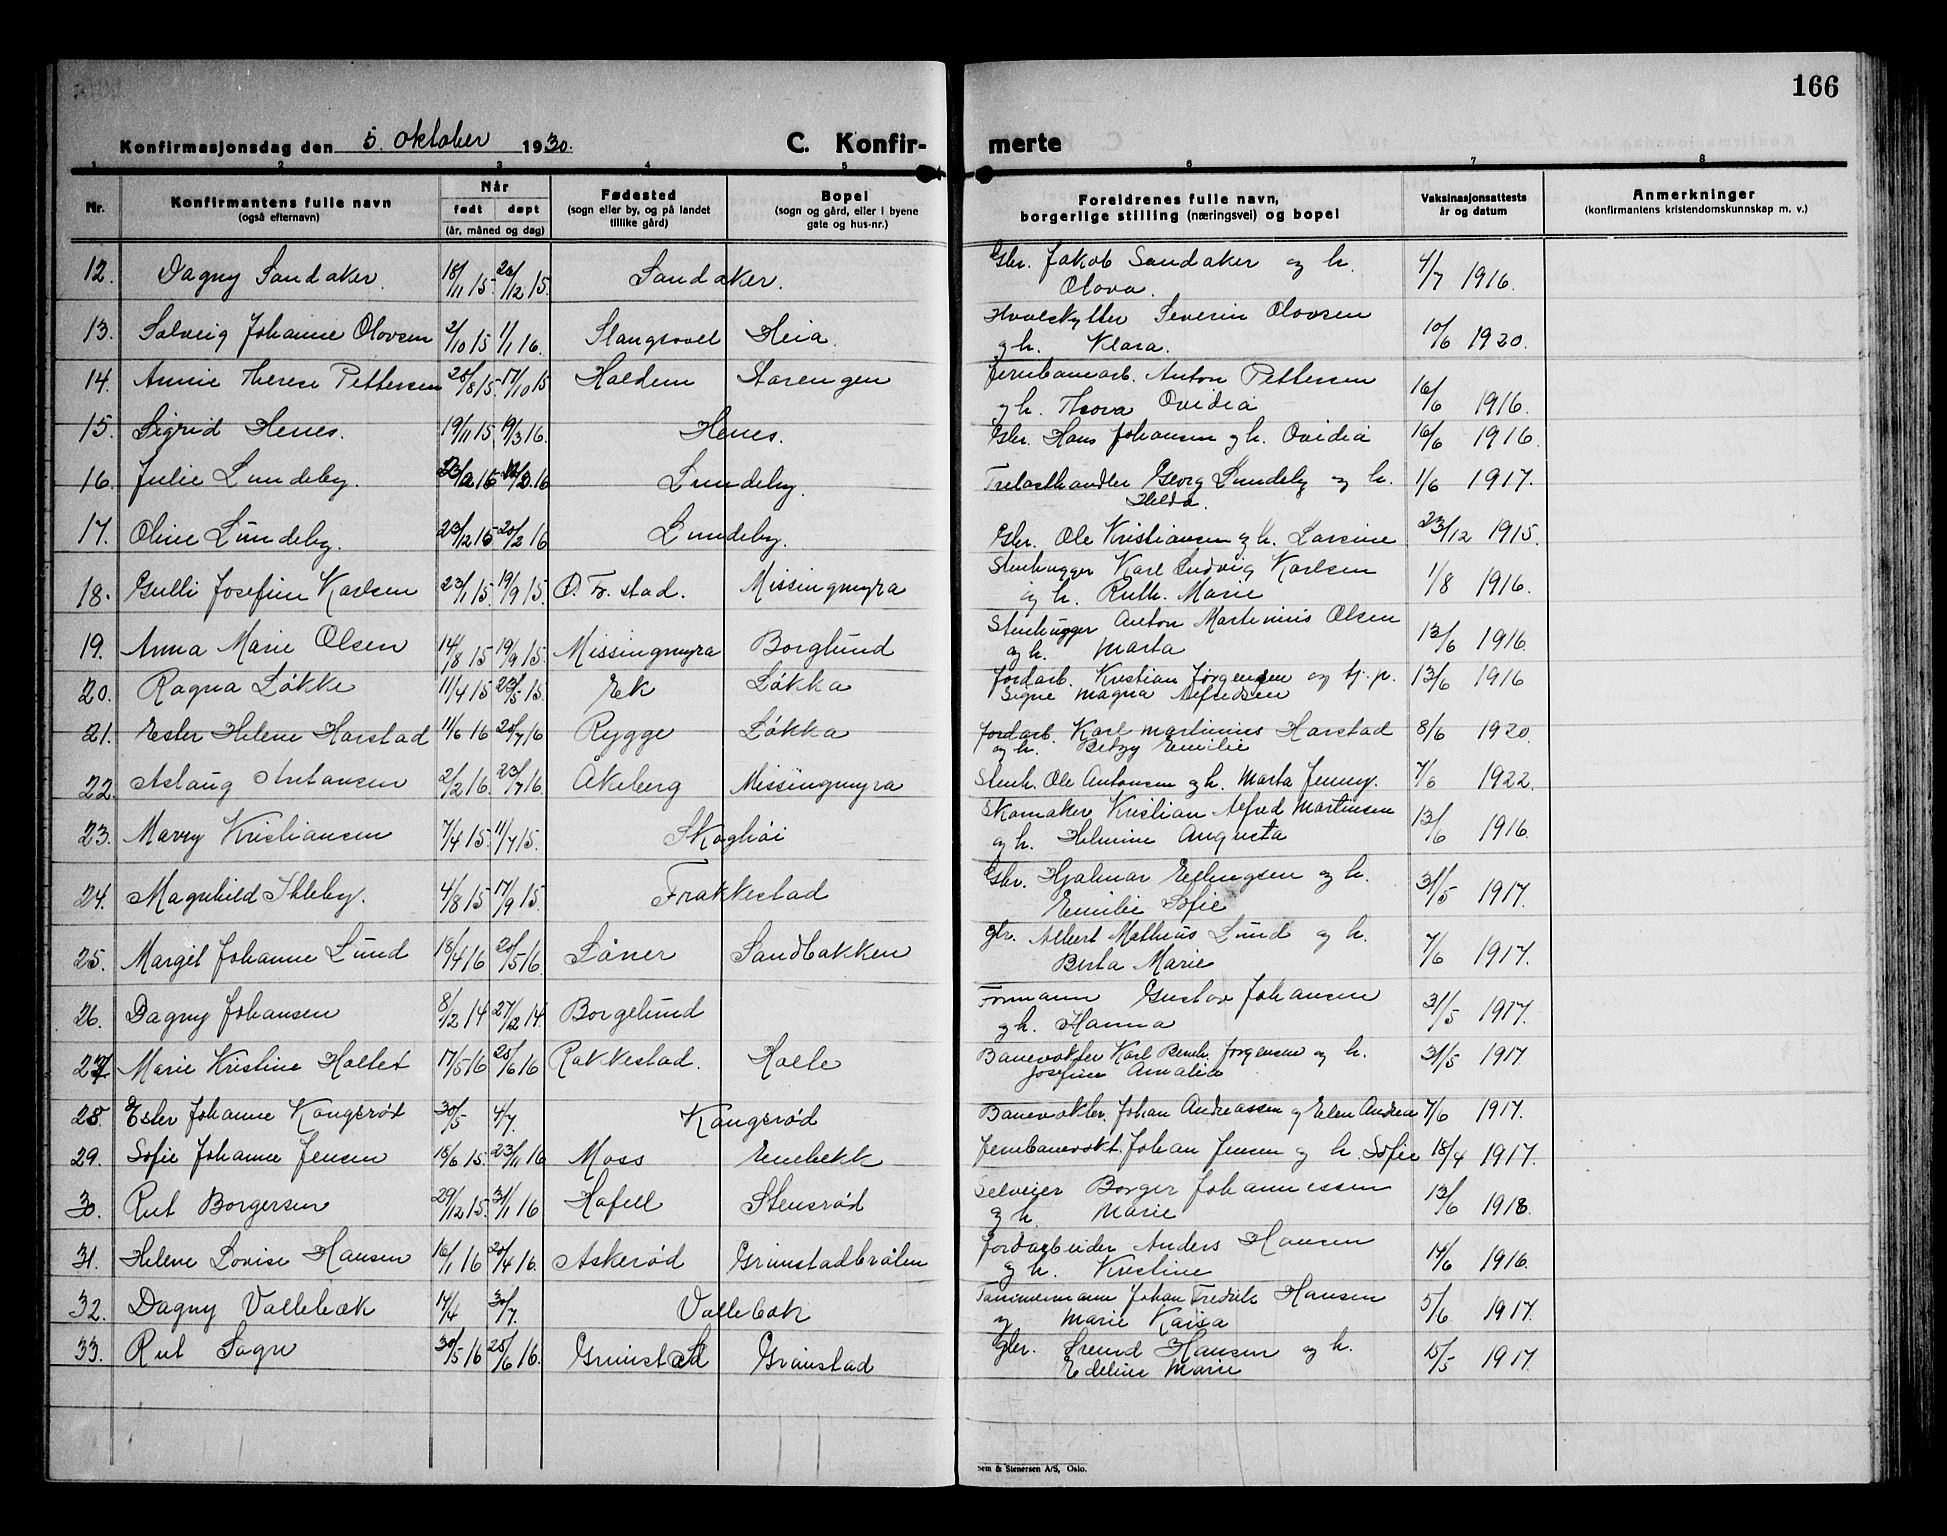 166
Konfirmasjonsdag den 5. oktober 1930.
C. Konfir- merte
1 2 3 4 5 6 7 8
Nr. Konfirmantens fulle navn (også efternavn) Når født døpt (år, måned og dag) Fødested (sogn eller by, og på landet tillike gård) Bopel (sogn og gård, eller i byene gate og hus-nr.) Foreldrenes fulle navn, borgerlige stilling (næringsvei) og bopel Vaksinasjonsattests år og datum Anmerkninger (konfirmantens kristendomskunnskap m. v.)
12. Dagny Sandaker. 18/11 15. 26/12 15. Sandaker. Gbr. Jakob Sandaker og h. Olava. 4/7 1916.
13. Solveig Johanne Olovsen 2/10 15 1/1 16. Slangsvel Heia. Hvalskytter Severin Olovsen og h. Klara. 10/6 1920.
14. Annie Therese Pettersen 28/8 15. 17/10 15 Halden Starengen Jernbanearb. Anton Pettersen og h. Thora Ovidia 16/6 1916.
15. Sigrid Henes. 19/11 15. 19/3 16. Henes. Gbr. Hans Johansen og h. Ovidia 16/6 1916.
16. Julie Lundeby. Lundeby. Trelasthandler Georg Lundeby og h. Hilda. 1/6 1917.
17. Oline Lundeby. 23/12 15 20/2 16 Lundeby. Gbr. Ole Kristiansen og h. Lovine 23/12 1915.
18. Gulli Josefine Karlsen 23/1 15. 19/9 15. O. Fr. stad. Missingmyra Stenhugger Karl Ludvig Karlsen og h. Ruth. Marie 1/8 1916.
19. Anna Marie Olsen 14/8 15 19/9 15. Missingmyra Borglund Stenhugger Anton Martinius Olsen og h. Marta 13/6 1916.
20. Ragna Løkke 11/4 15 23/5 15. Ek Løkka Jordarb. Kristian Jørgensen og tj. p. Signe Magna Alfredsen 13/6 1916
21. Ester Helene Harstad 11/6 16 20/7 16 Rygge Løkka Jordarb. Karl Martinius Harstad og h. Betzy Emilie 8/6 1920.
22. Aslaug Antonsen 2/2 16. 23/7 16. Åkeberg Missingmyra Stenh. Ole Antonsen og h. Marta Jenny. 7/6 1922.
23. Marry Kristiansen 7/4 15. 11/7 15. Skoghøi Skomaker Kristian Alfred Martinsen og h. Helmine Augusta 13/6 1916.
24. Magnhild Ihleby. 4/8 15 17/9 15. Frakkestad Gbr. Hjalmar Ellingsen og h. Emilie Sofie 31/5 1917.
25. Margit Johanne Lund 18/4 16 28/5 16. Såner Sandbakken gbr. Albert Matheus Lund og h. Berta Marie 7/6 1917.
26. Dagny Johansen 8/2 14 27/12 14. Borgelund Formann Gustav Johansen og h. Hanna 31/5 1917.
27. Marie Kristine Holtet 17/5 16 25/6 16 Rakkestad. Holte Banevokter Karl Bernh. Jørgensen og h. Josefine Amalie 31/5 1917.
28. Ester Johanne Kongsrød 30/5 4/7. Kongsrød Banevokter. Johan Andreassen og Elen Andrea 7/6 1917.
29. Sofie Johanne Jensen 18/6 15. 23/11 16 Moss Enebekk Jernbanevokt. Johan Jensen og h. Sofie 18/4 1917.
30. Rut Borgersen 29/12 15. 31/1 16 Hafell Stensrød Selveier Borger Johannessen og h. Marie 13/6 1918.
31. Helene Lovise Hansen 16/1 16 20/4 16. Askerød Grimstadbråten Jordarbeider Anders Hansen og h. Kristine 14/6 1916.
32. Dagny Vallebæk 14/4 30/7. Vallebæk Tømmermann Johan Fredrik Hansen og Marie Kaisa 5/6 1917.
33. Rut Sogn 30/5 16 25/6 16. Grimstad Grimstad gbr. Hansen og h. Edeline Marie 15/5 1917.
Sem & Stenersen A/S, Oslo.